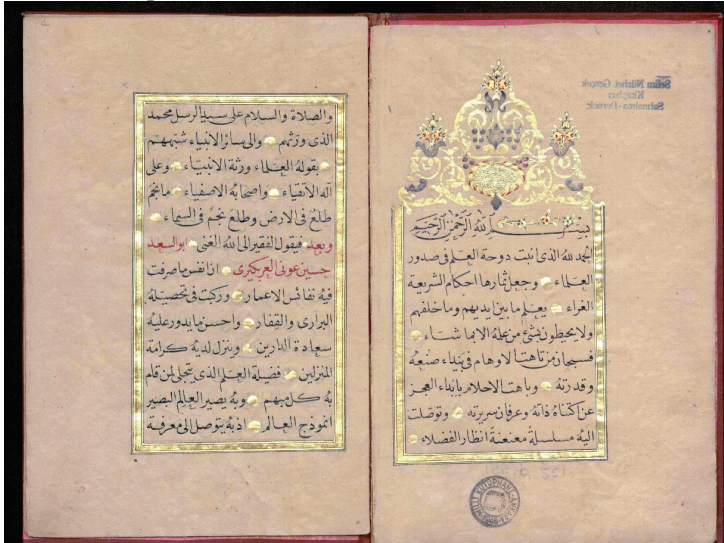 بسم الله الرحمن الرحيم
الحمد لله الذى انبت دوحة العلم فى صدور
العلماء وجعل ثمارها احكام الشريعة
الغراء يعلم ما بين ايديهم وما خلفهم
ولا يحيطون بشئ من علمه الا بما شاء
فسبحان من تاهت الاوهام فى بيداء صنعه
وقدرته وباهت الاحلام بانداء العجز
عن اكتناه ذاته وعرفان سريرته وتوصلت
اليه مسلسلة معنعنة انظار الفضلاء
والصلاة والسلام على سيد الرسل محمد
الذى ورثهم والى سائر الانبياء شبههم
بقوله العلماء ورثة الانبياء وعلى
آله الاتقياء واصحابه الاصفياء ما نجم
طلع فى الارض وطلع نجم فى السماء
وبعد فيقول الفقير الى الله الغنى ابو السعد
حسين عونى العربكيرى ان انفس ما صرفت
فيه نفائس الاعمار وركبت فى تحصيله
البرارى والقفار واحسن ما يدور عليه
سعادة الدارين وينزل لديه كرامة
المنزلين فضيلة العلم الذى يتجلى لمن قام
به كل مبهم وبه يصير العالم البصير
انموذج العالم اذ به يتوصل الى معرفة
Selim Nüzhet Gerçek
Kitapları
Satınalma - Dernek
MİLLİ KÜTÜPHANE - ANKARA